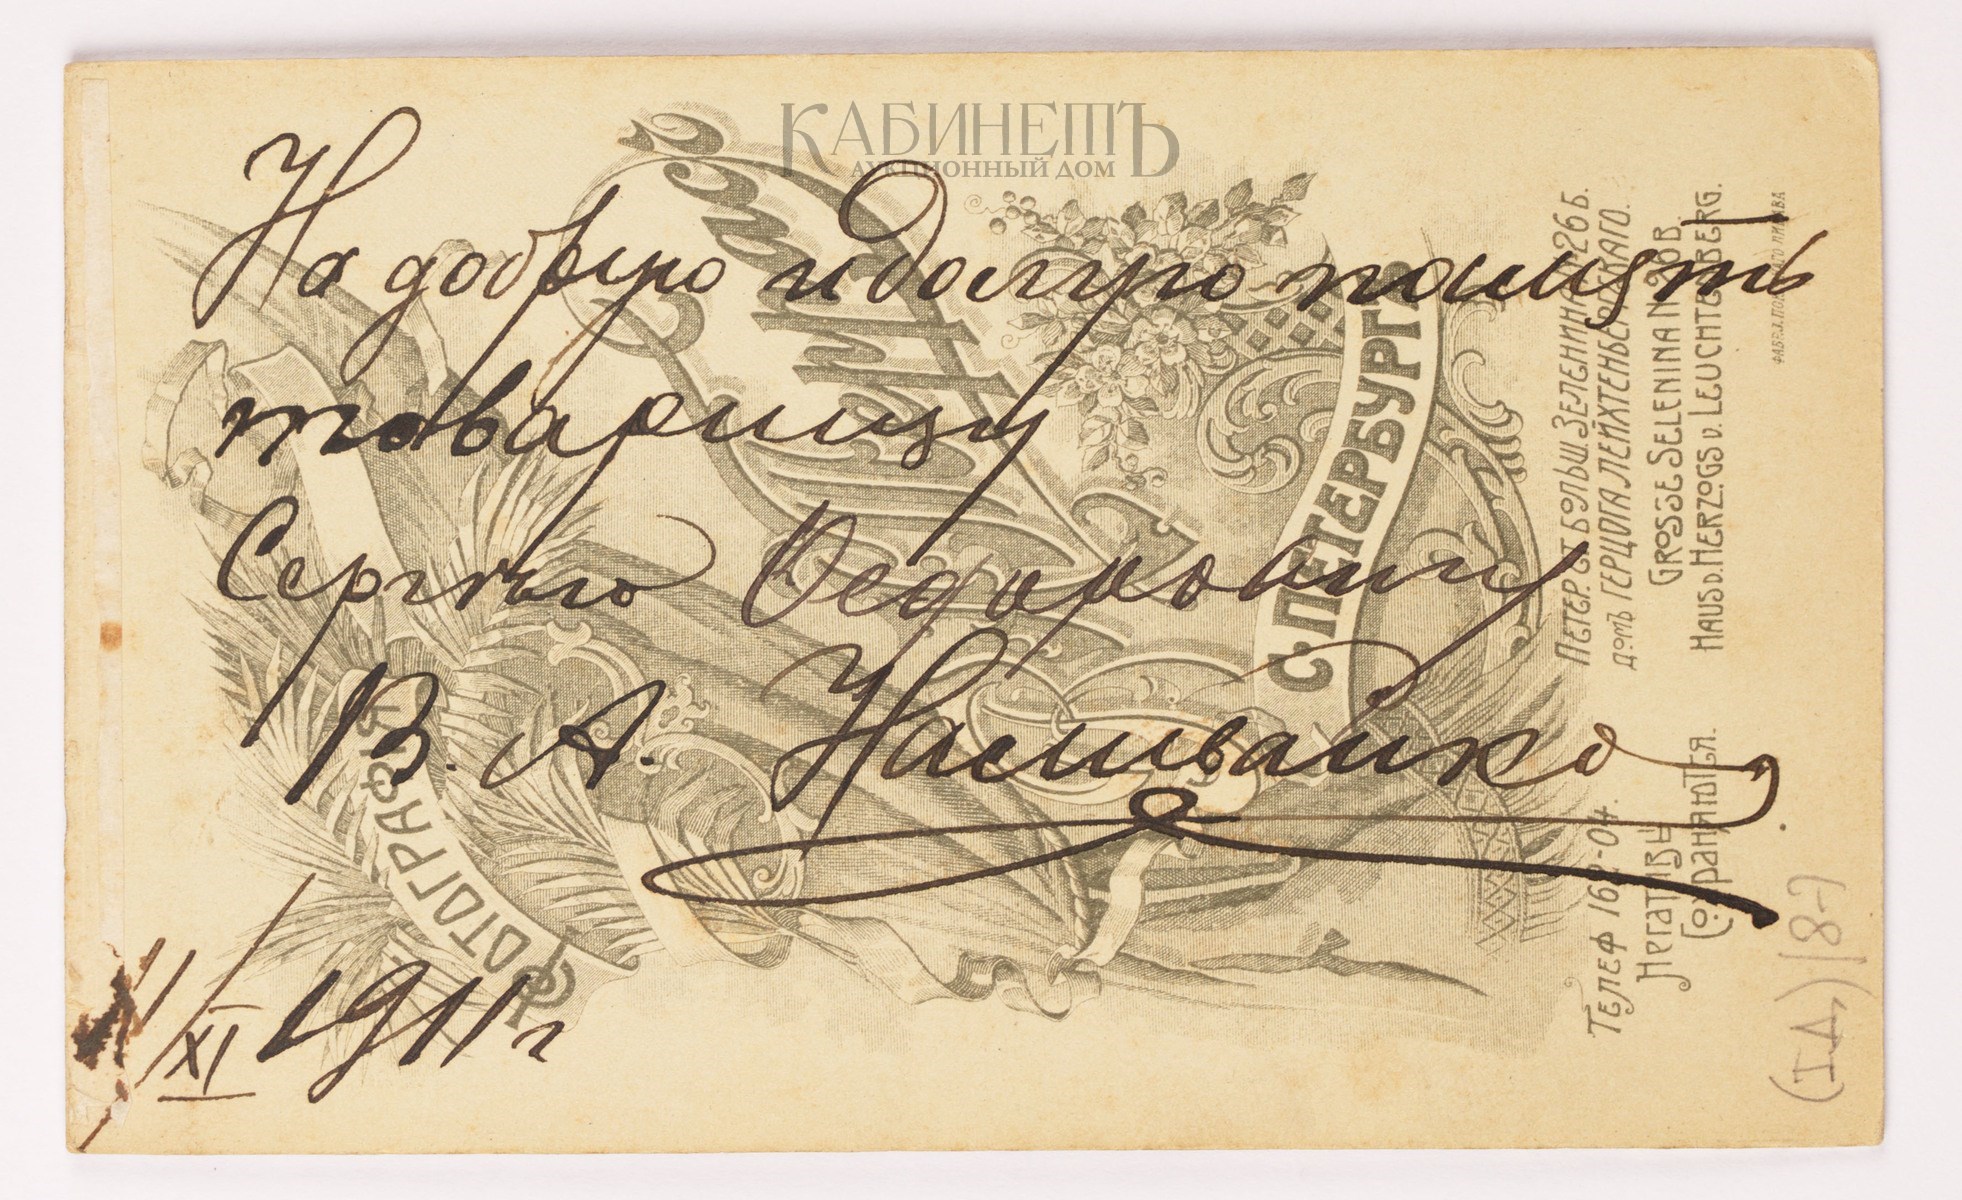 КАБИНЕТЪ
АУКЦИОННЫЙ ДОМ
На добрую и долгую память
товарищу
Сергѣю Ѳедоровичу
В. А. Насивайко
11/XI 1911 г
ФОТОГРАФІЯ
С. ПЕТЕРБУРГЪ
ПЕТЕР. СТ. БОЛЬШ. ЗЕЛЕНИНА № 26 Б.
ДОМЪ ГЕРЦОГА ЛЕЙХТЕНБЕРГСКАГО.
GROSSE SELENINA N 26 B.
HAUS D. HERZOGS V. LEUCHTENBERG.
ТЕЛЕФ 162-04.
НЕГАТИВЫ
СОХРАНЯЮТСЯ.
(І Д,) 187